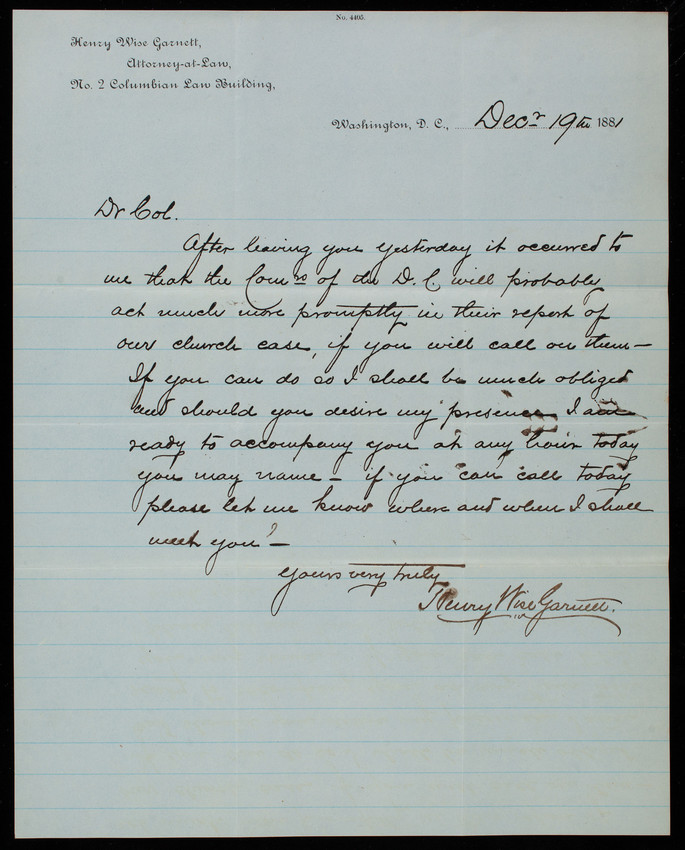 No. 4405.
Henry Wise Garnett,
Attorney-at-Law,
No. 2 Columbian Law Building,
Washington, D. C., Decr 19th 1881
Dr Col.
After leaving you yesterday it occurred to
me that the Comrs of the D. C. will probably
act much more promptly in their report of
our church case, if you will call on them—
If you can do so I shall be much obliged
and should you desire my presence I am
ready to accompany you at any hour today
you may name – if you can call today
please let me know where and when I shall
meet you –
Yours very truly
Henry Wise Garnett.